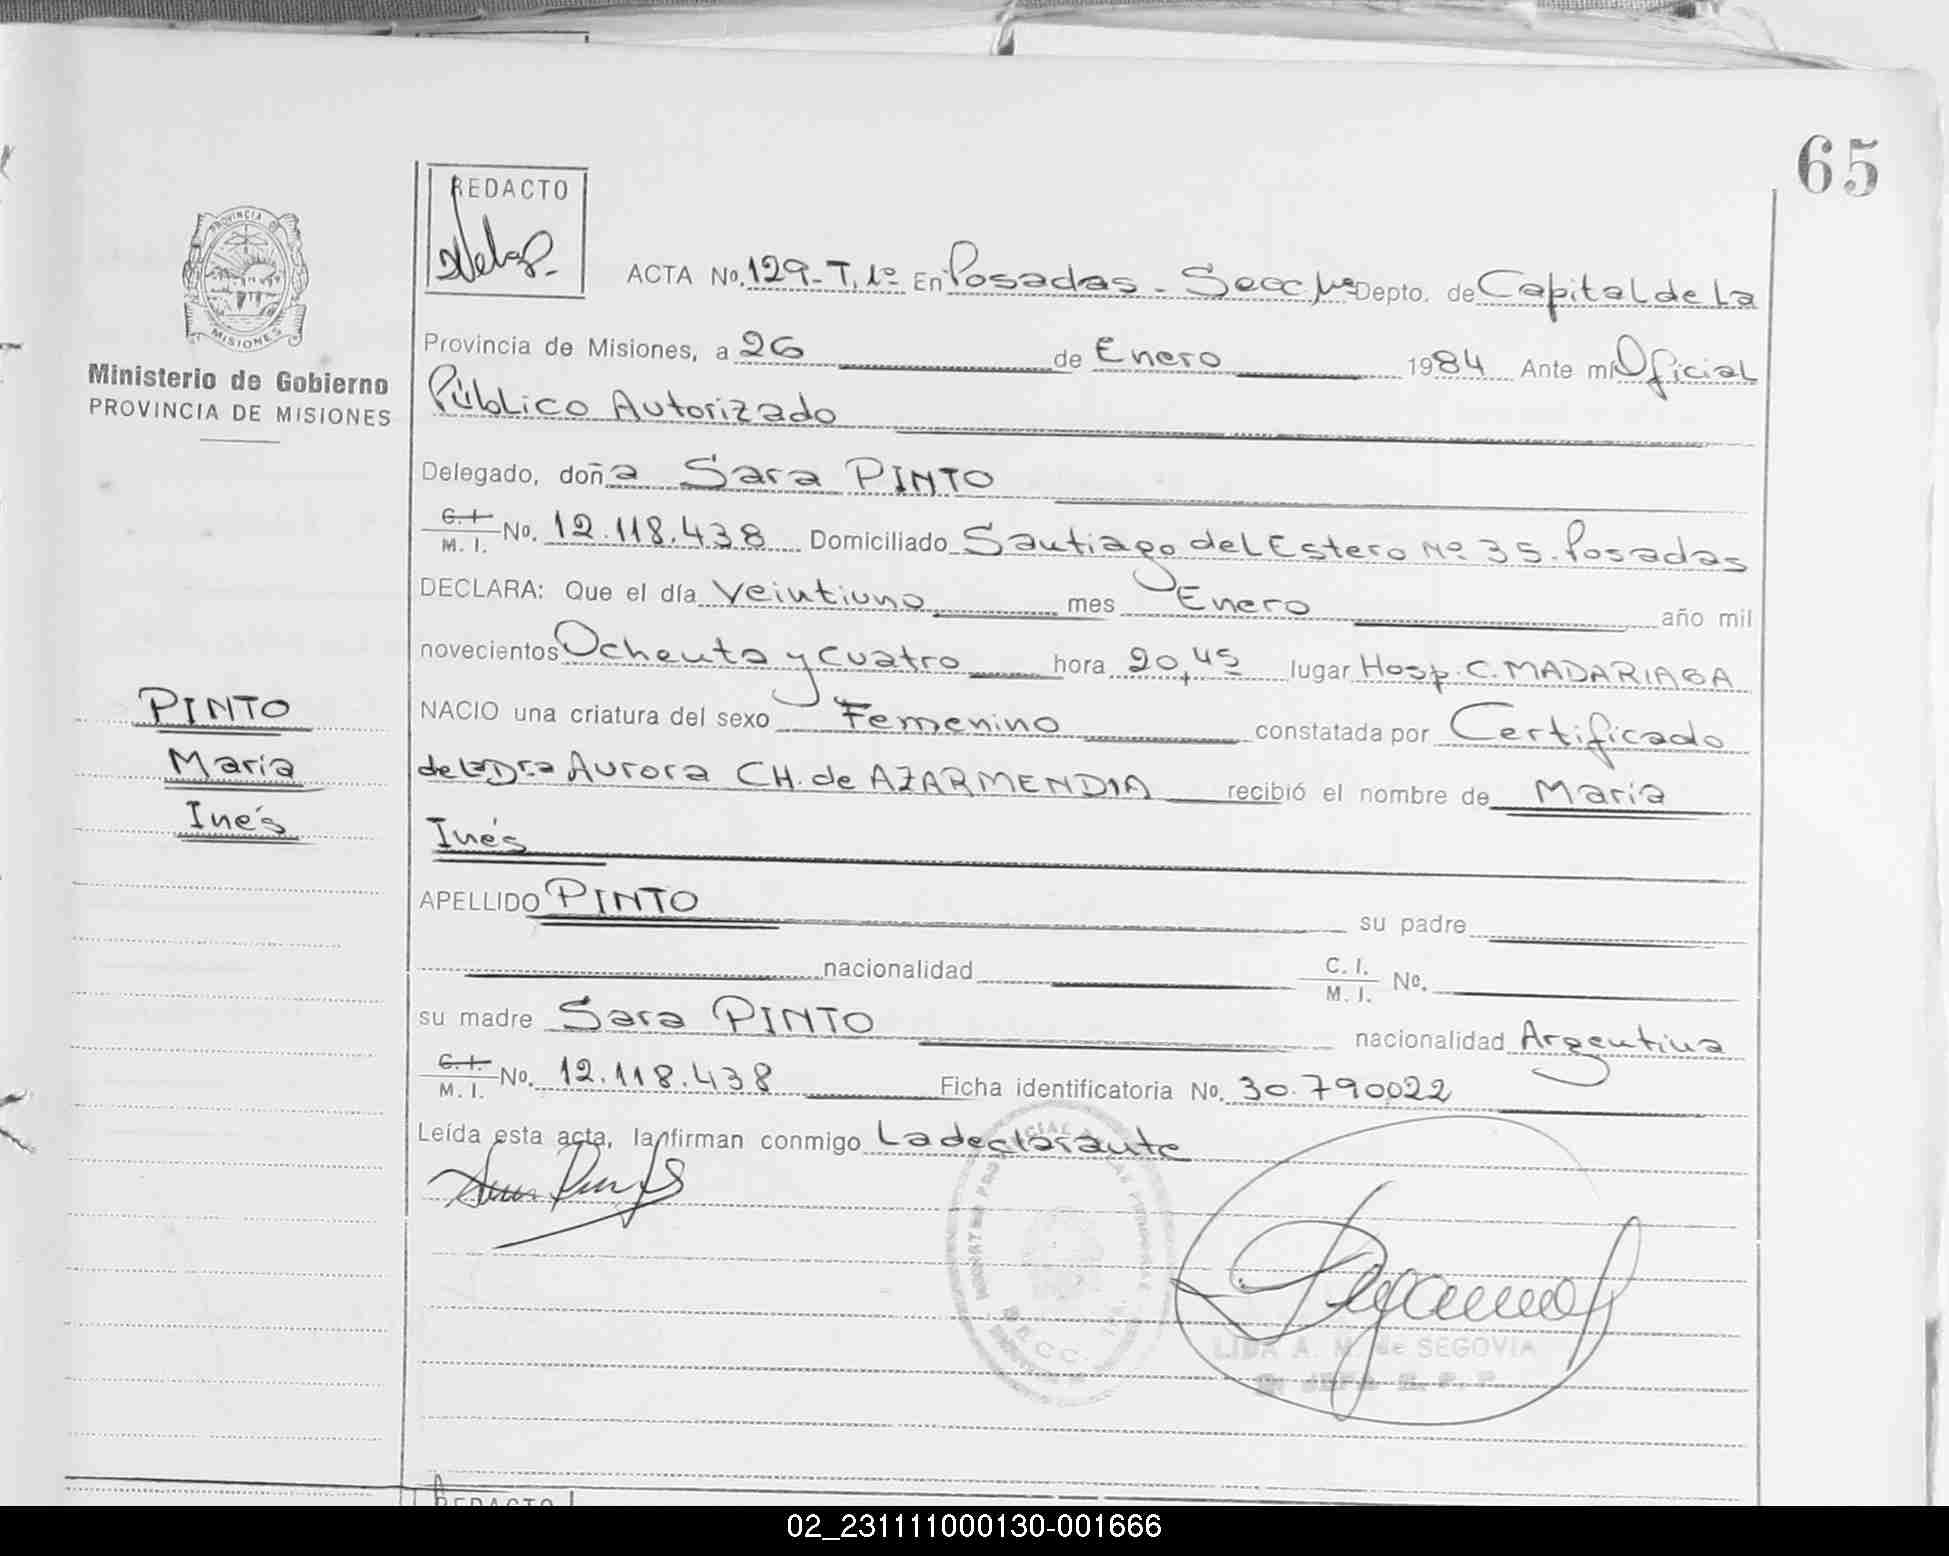 65
REDACTO
PROVINCIA DE
MISIONES
Ministerio de Gobierno
PROVINCIA DE MISIONES
PINTO
María
Inés
ACTA No. 129-T. 1º En Posadas - Secc. 1ª Depto. de Capital de La
Provincia de Misiones, a 26 de Enero 1984 Ante mi Oficial
Público Autorizado
Delegado, doña Sara PINTO
C. I.
M. I. No. 12.118.438 Domiciliado Santiago del Estero Nº 35. Posadas
DECLARA: Que el día Veintiuno mes Enero año mil
novecientos Ochenta y cuatro hora 20,45 lugar Hosp. C. MADARIAGA
NACIO una criatura del sexo Femenino constatada por Certificado
de la Dra Aurora CH. de AZARMENDIA recibió el nombre de María
Inés
APELLIDO PINTO su padre
nacionalidad C. I.
M. I. No.
su madre Sara PINTO nacionalidad Argentina
C. I.
M. I. No. 12.118.438 Ficha identificatoria No. 30.790022
Leída esta acta, la firman conmigo La declarante
LIDA A. M. de SEGOVIA
REDACTO
02_231111000130-001666